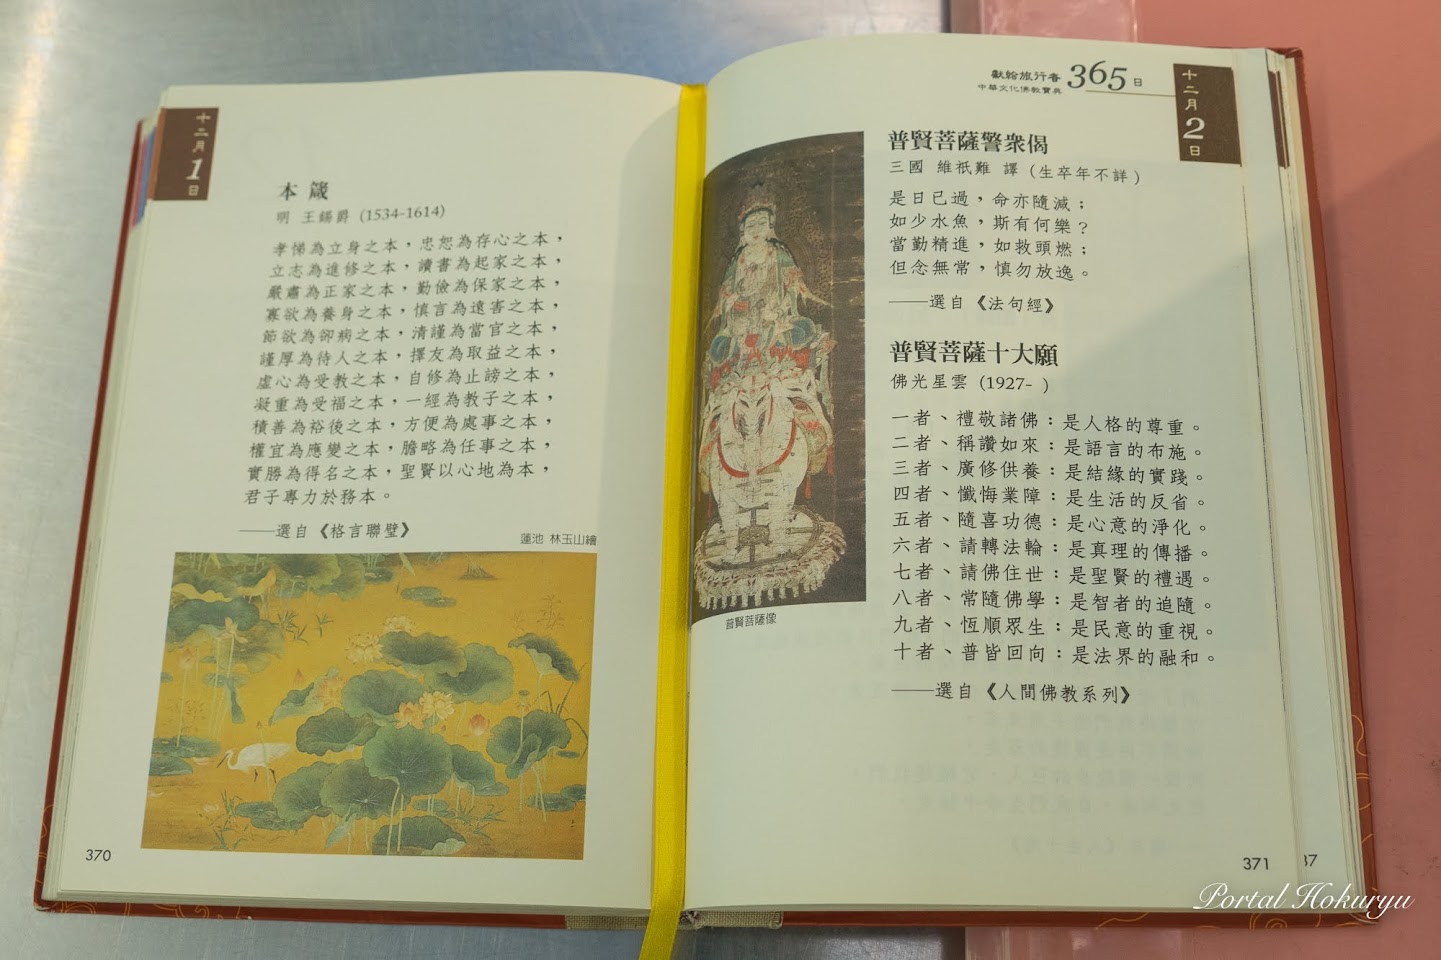 十二月
1日
本箴
明 王錫爵 (1534-1614)
孝悌為立身之本，忠恕為存心之本，
立志為進修之本，讀書為起家之本，
嚴肅為正家之本，勤儉為保家之本，
寡欲為養身之本，慎言為遠害之本，
節欲為卻病之本，清謹為當官之本，
謹厚為待人之本，擇友為取益之本，
虛心為受教之本，自修為止謗之本，
凝重為受福之本，一經為教子之本，
積善為裕後之本，方便為處事之本，
權宜為應變之本，膽略為任事之本，
實勝為得名之本，聖賢以心地為本，
君子專力於務本。
——選自《格言聯璧》
蓮池 林玉山繪
370
獻給旅行者365日
中華文化佛教寶典
十二月
2日
普賢菩薩警衆偈
三國 維祇難 譯 (生卒年不詳)
是日已過，命亦隨減；
如少水魚，斯有何樂？
當勤精進，如救頭燃；
但念無常，慎勿放逸。
——選自《法句經》
普賢菩薩十大願
佛光星雲 (1927- )
一者、禮敬諸佛：是人格的尊重。
二者、稱讚如來：是語言的布施。
三者、廣修供養：是結緣的實踐。
四者、懺悔業障：是生活的反省。
五者、隨喜功德：是心意的淨化。
六者、請轉法輪：是真理的傳播。
七者、請佛住世：是聖賢的禮遇。
八者、常隨佛學：是智者的追隨。
九者、恆順眾生：是民意的重視。
十者、普皆回向：是法界的融和。
——選自《人間佛教系列》
普賢菩薩像
371
37
Portal Hokuryu